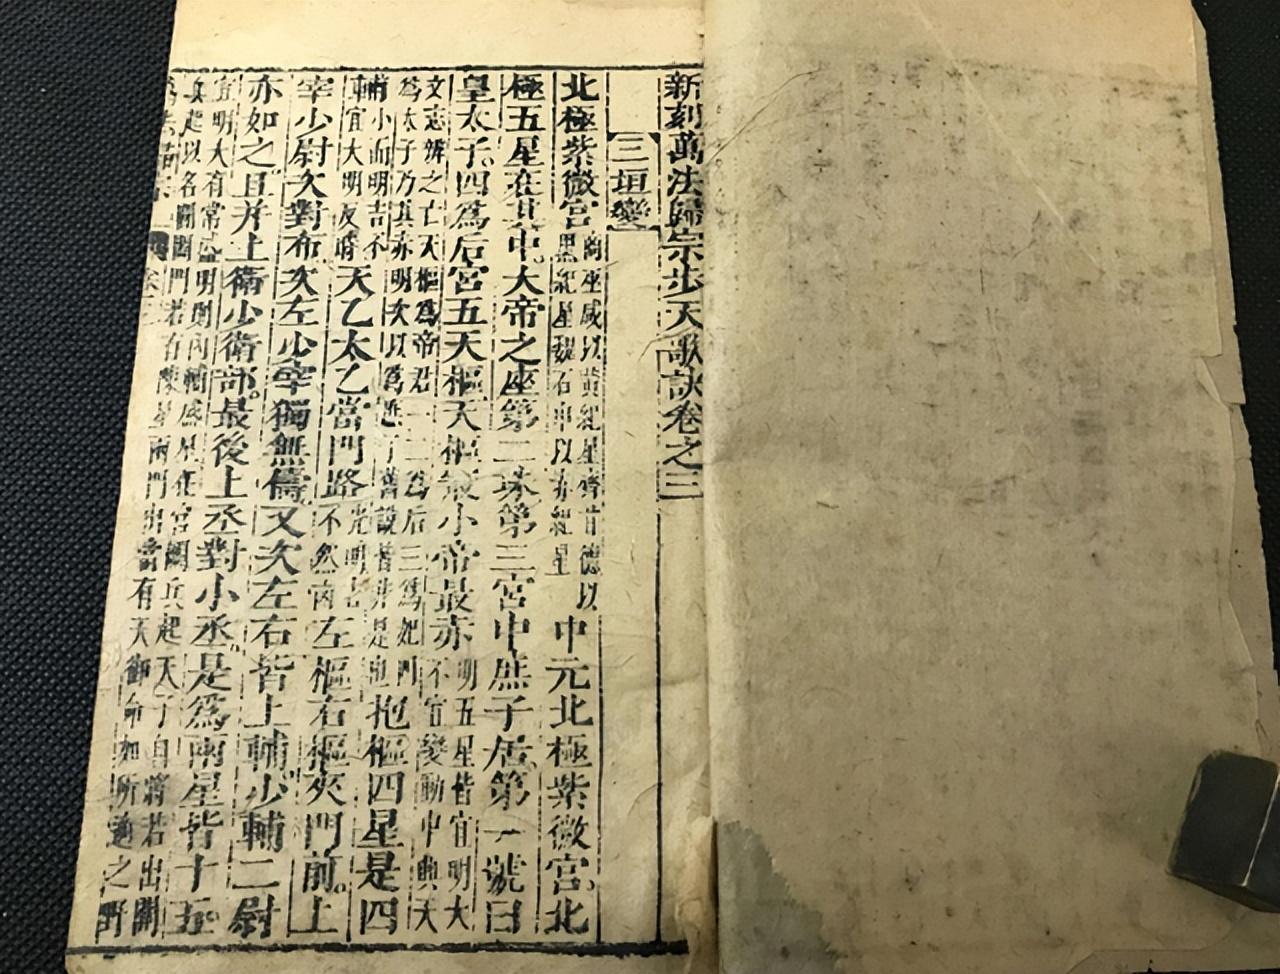 新刻萬法歸宗步天歌訣卷之三
三垣變
北極紫微宮
兩座咸以黃紀星齊甘德以
黑紀星魏石申以赤紀星
中元北極紫微宮北
極五星在其中大帝之座第二珠第三宮中庶子居第一號曰
皇太子四爲后宮五天樞天樞最小帝最赤
明五星皆宜明大
不宜變動中興天
文志辨之亡天樞爲帝君一二爲后三爲妃門
爲太子乃其亦明次以爲
舊說皆非是也
抱樞四星是四
輔小而明吉不
宜大明反暗
天乙太乙當門路
光明吉
不然凶
左樞右樞夾門前上
宰少尉次對布次左少宰獨無儔又次左右皆上輔少輔二尉
亦如之且并上衛少衛部最後上丞對小丞是爲兩星皆十五
宜明大有常 明則內輔盛星在宮闕兵起天子自將若出關
兵起以各關闢門若有 星兩門出當有天御命如所適之野